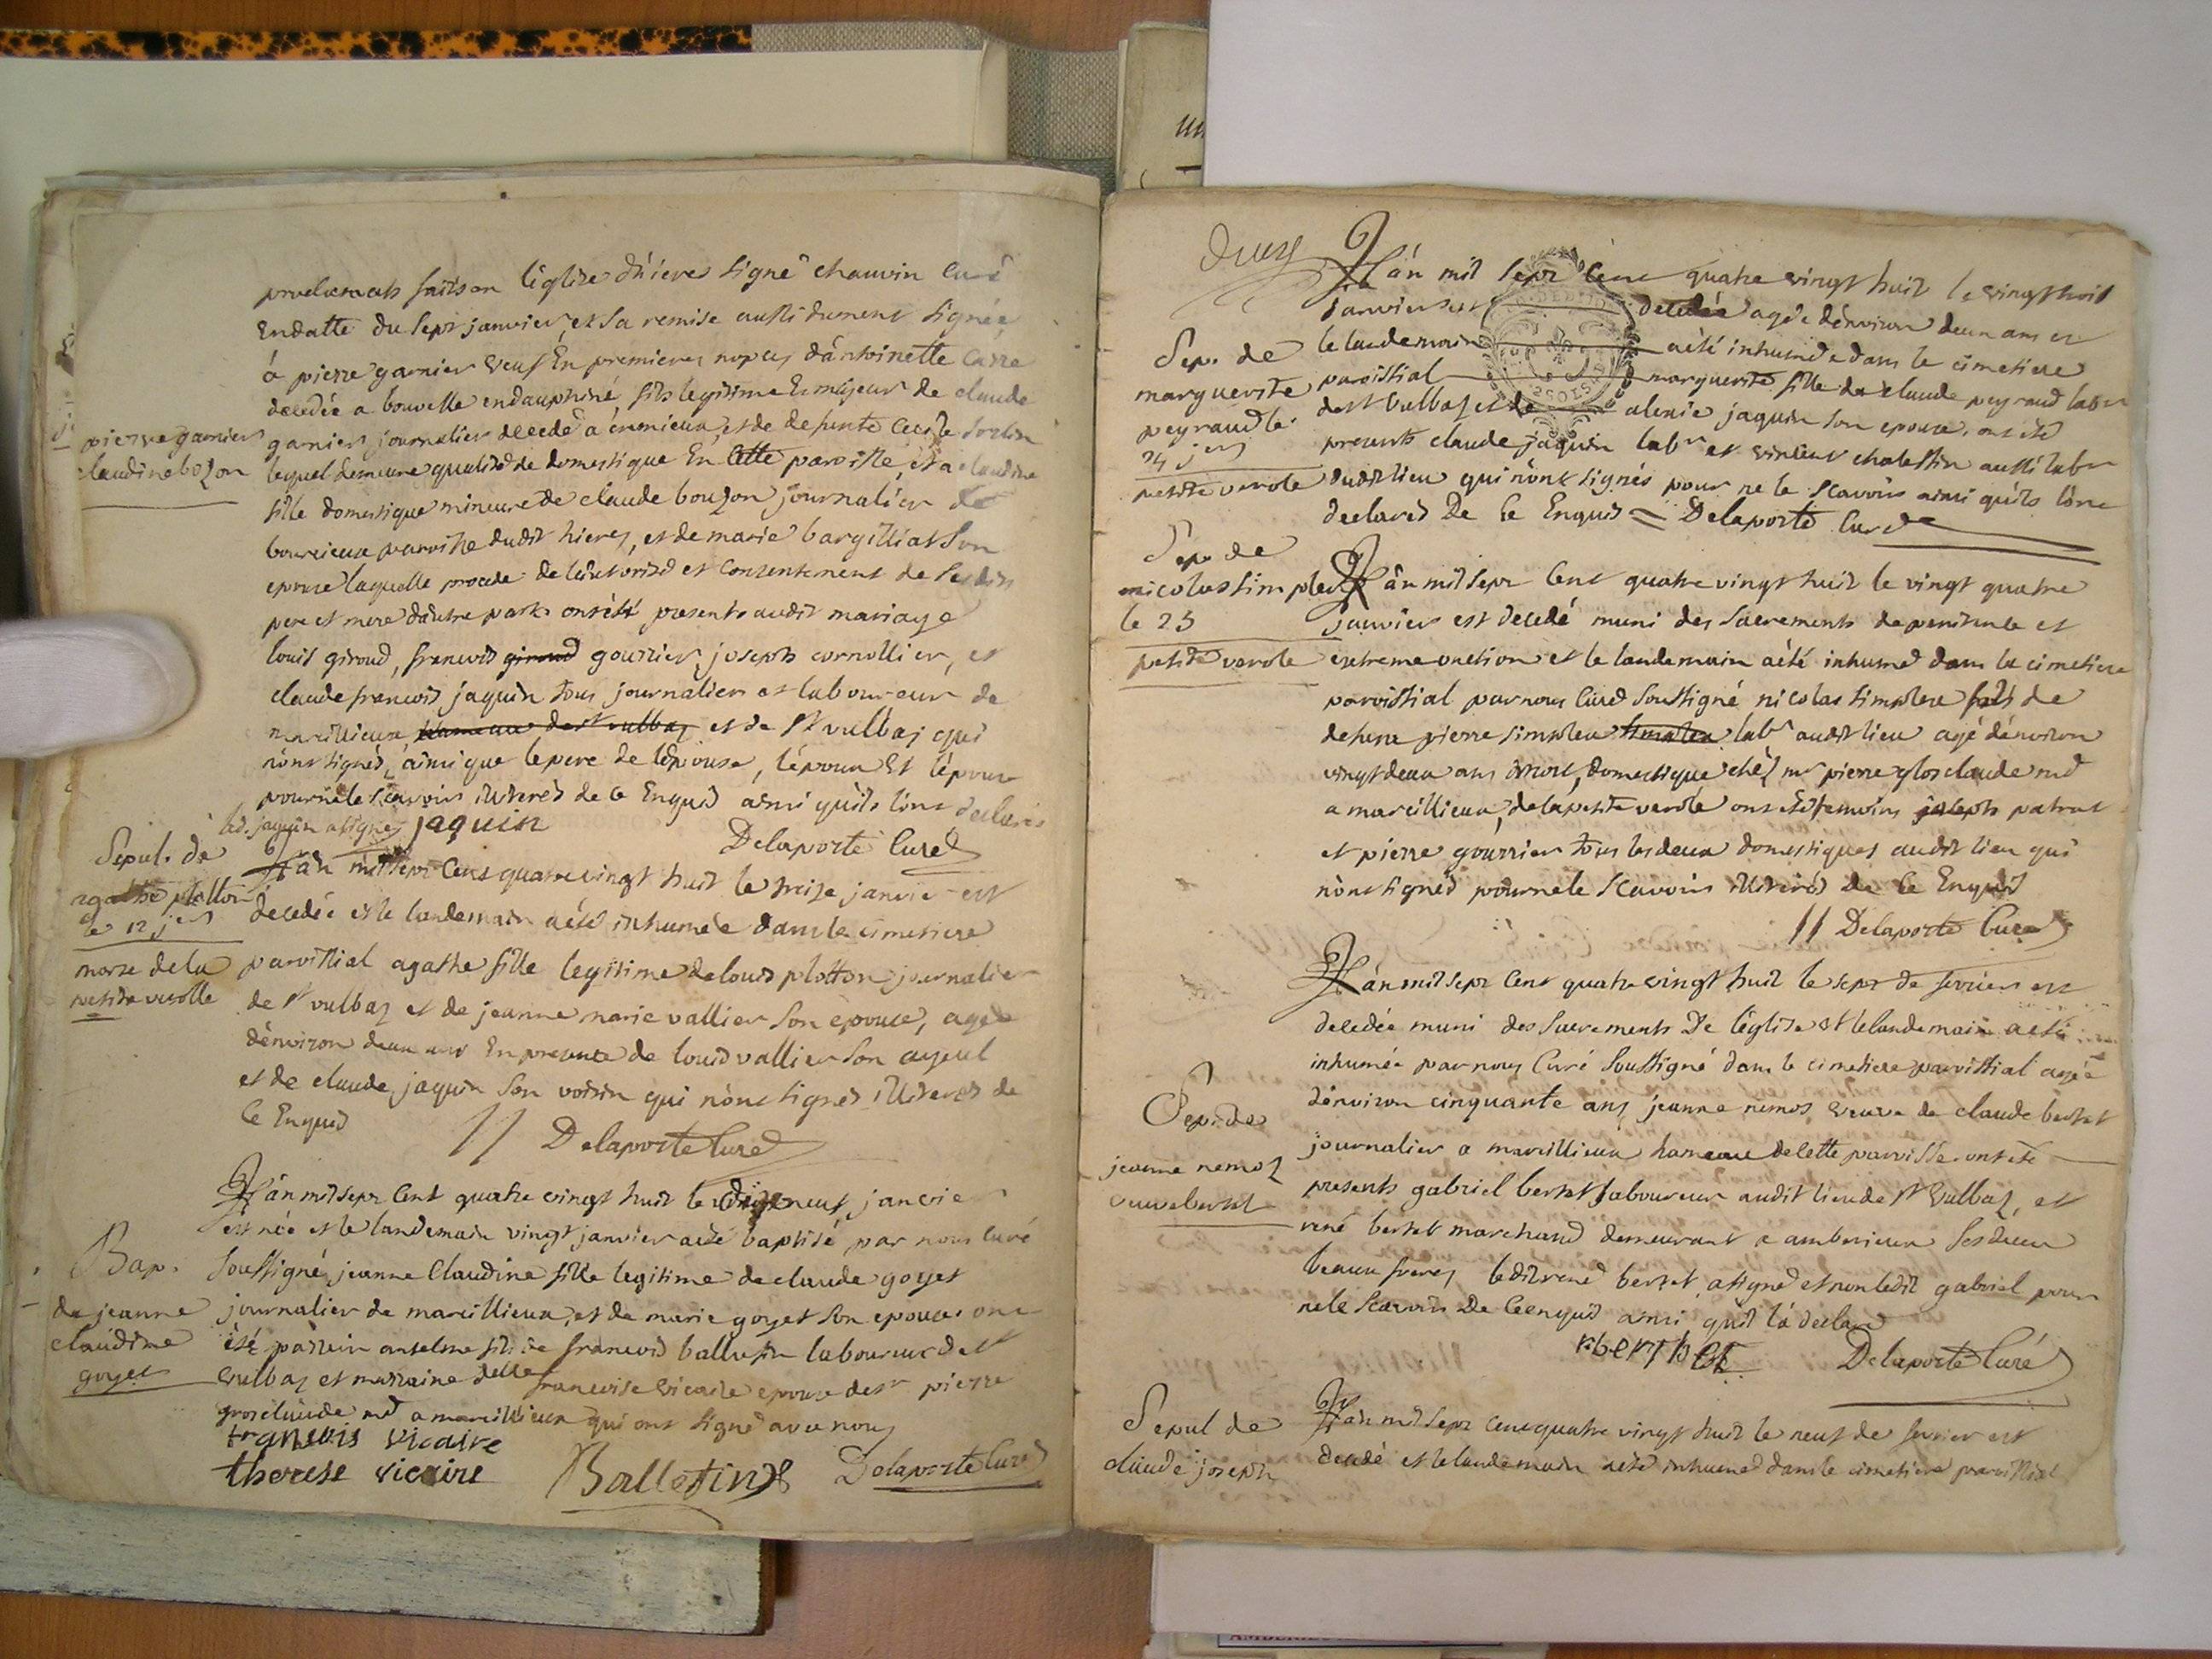 proclamats faits en l'église d'hiere signé chauvin Curé
En datte du sept janvier, et sa remise aussi dument signée
à pierre garnier veuf En premieres nopces d'antoinette
decedée a bouvesse en dauphiné, fils legitime Et majeur de claude
pierre garnier
claudine bozon
garnier journalier decedé a cremieux, et de defunte Cecile
lequel demeure qualité de domestique En Cette paroisse, et a claudine
fille domestique mineure de claude bouzon journalier de
paroisse dudit hieres, et de marie bargilliat son
epouse laquelle procede de l'autorité et Consentement de ses dits
pere et mere d'autre part. ont été presents audit mariage
louis giroud, francois giroud gourrier, joseph cornollier, et
claude francois jaquin tous journaliers et laboureur de
marcillieux, hameau de st vulbaz et de st vulbaz qui
n'ont signés, ainsi que le pere de l'epouse, l'époux Et l'épouse
pour ne le scavoir illiterés de ce Enquis ainsi qu'ils l'ont declarés
led. jaquin a signé jaquin
Delaporte Curé
Sepul. de
agathe plotton
le 12 jer
morte de la
petite verolle
L'an mil sept Cent quatre vingt huit le treize janvier est
decedée et le landemain a été inhumée dans le cimetiere
paroissial agathe fille legitime de louis plotton journalier
de st vulbaz et de jeanne marie vallier son epouse, agée
d'environ deux ans En presence de louis vallier son ayeul
et de claude jaquin son voisin qui n'ont signés illiterés de
Ce Enquis // Delaporte Curé
Bap.
de jeanne
claudine
goyet
L'an mil sept Cent quatre vingt huit le dix neuf janvier
est née et le landemain vingt janvier a été baptisé par nous Curé
soussigné, jeanne Claudine fille legitime de claude goyet
journalier de marcillieux, et de marie goyet son epouse. ont
été parrein anselme fils de francois ballefin laboureur de st
vulbaz et marraine delle francoise vicaire epouse de sr pierre
grosclaude md a marcillieux qui ont signé avec nous
fransois vicaire
therese vicaire Balletin Delaporte Curé
L'an mil sept Cent quatre vingt huit le vingt trois
Sep. de
marguerite
peyraud le
24 jer
petite verole
janvier est decedée agée d'environ deux ans et
le landemain a été inhumée dans le cimetiere
paroissial marguerite fille de claude peyraud labr
de st vulbaz et de alexie jaquin son epouse. ont été
presents claude jaquin labr et vincent chalessin aussi labr
dudit lieu qui n'ont signés pour ne le scavoir ainsi qu'ils l'ont
declarés De Ce Enquis = Delaporte Curé
Sep. de
nicolas simplex
le 25
petite verole
L'an mil sept Cent quatre vingt huit le vingt quatre
janvier est decedé muni des sacrements de penitence et
extreme onction et le landemain a été inhumé dans le cimetiere
paroissial par nous Curé soussigné nicolas simplex fils de
defunt pierre simplex simplex labr audit lieu agé d'environ
vingt deux ans mort, domestique chez mr pierre grosclaude md
a marcillieux, de la petite verole ont été temoins joseph patrat
et pierre gourrier tous les deux domestiques audit lieu qui
n'ont signés pour ne le scavoir illiterés De Ce Enquis
// Delaporte Curé
Sep. de
jeanne nemoz
veuve bertet
L'an mil sept Cent quatre vingt huit le sept de fevrier est
decedée muni des sacrements De l'église et le landemain a été
inhumée par nous Curé soussigné dans le cimetiere paroissial agée
d'environ cinquante ans jeanne nemos veuve de claude bertet
journalier a marcillieux hameau de cette paroisse. ont été
presents gabriel bertet laboureur audit lieu de st vulbaz, et
rené bertet marchand demeurant a amberieux ses deux
beaux freres ledit rené bertet a signé et non ledit gabriel pour
ne le scavoir De Ce enquis ainsi qu'il l'a declaré
r. berthet Delaporte Curé
Sepul de
claude joseph
L'an mil sept Cent quatre vingt huit le neuf de fevrier est
decedé et le landemain a été inhumé dans le cimetiere paroissial